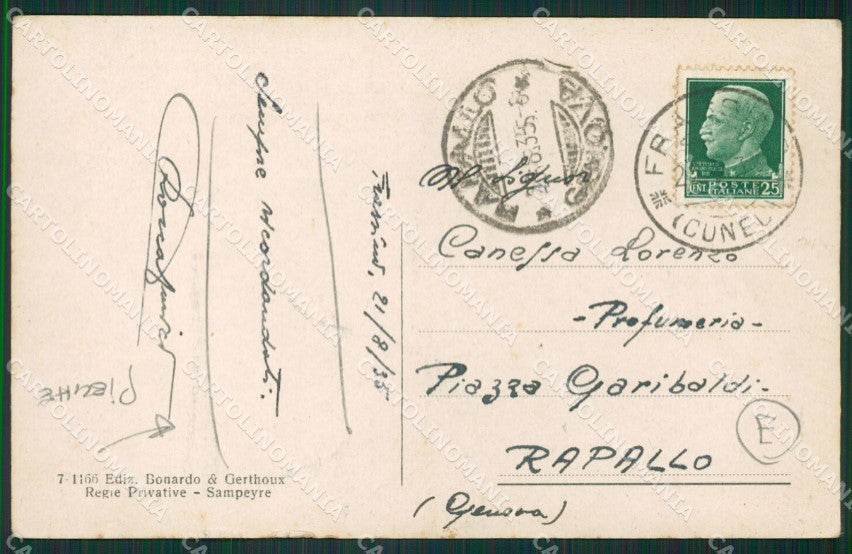 Frassino, 21/8/35
Sempre ricordandoti.
PIEGHE
7-1166 Ediz. Bonardo & Gerthoux
Regie Privative - Sampeyre
RAPALLO
GENOVA
FRA
(CUNEO)
CENT. POSTE 25
ITALIANE
Al Signor
Canessa Lorenzo
- Profumeria -
Piazza Garibaldi -
RAPALLO
(Genova)
E
CARTOLINOMANIA